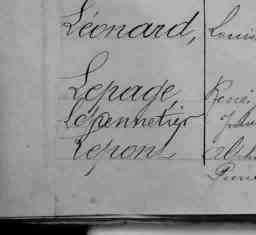 Léonard, Louis
Lepage, René
Lepennetier
Lepont Alph
Pierre